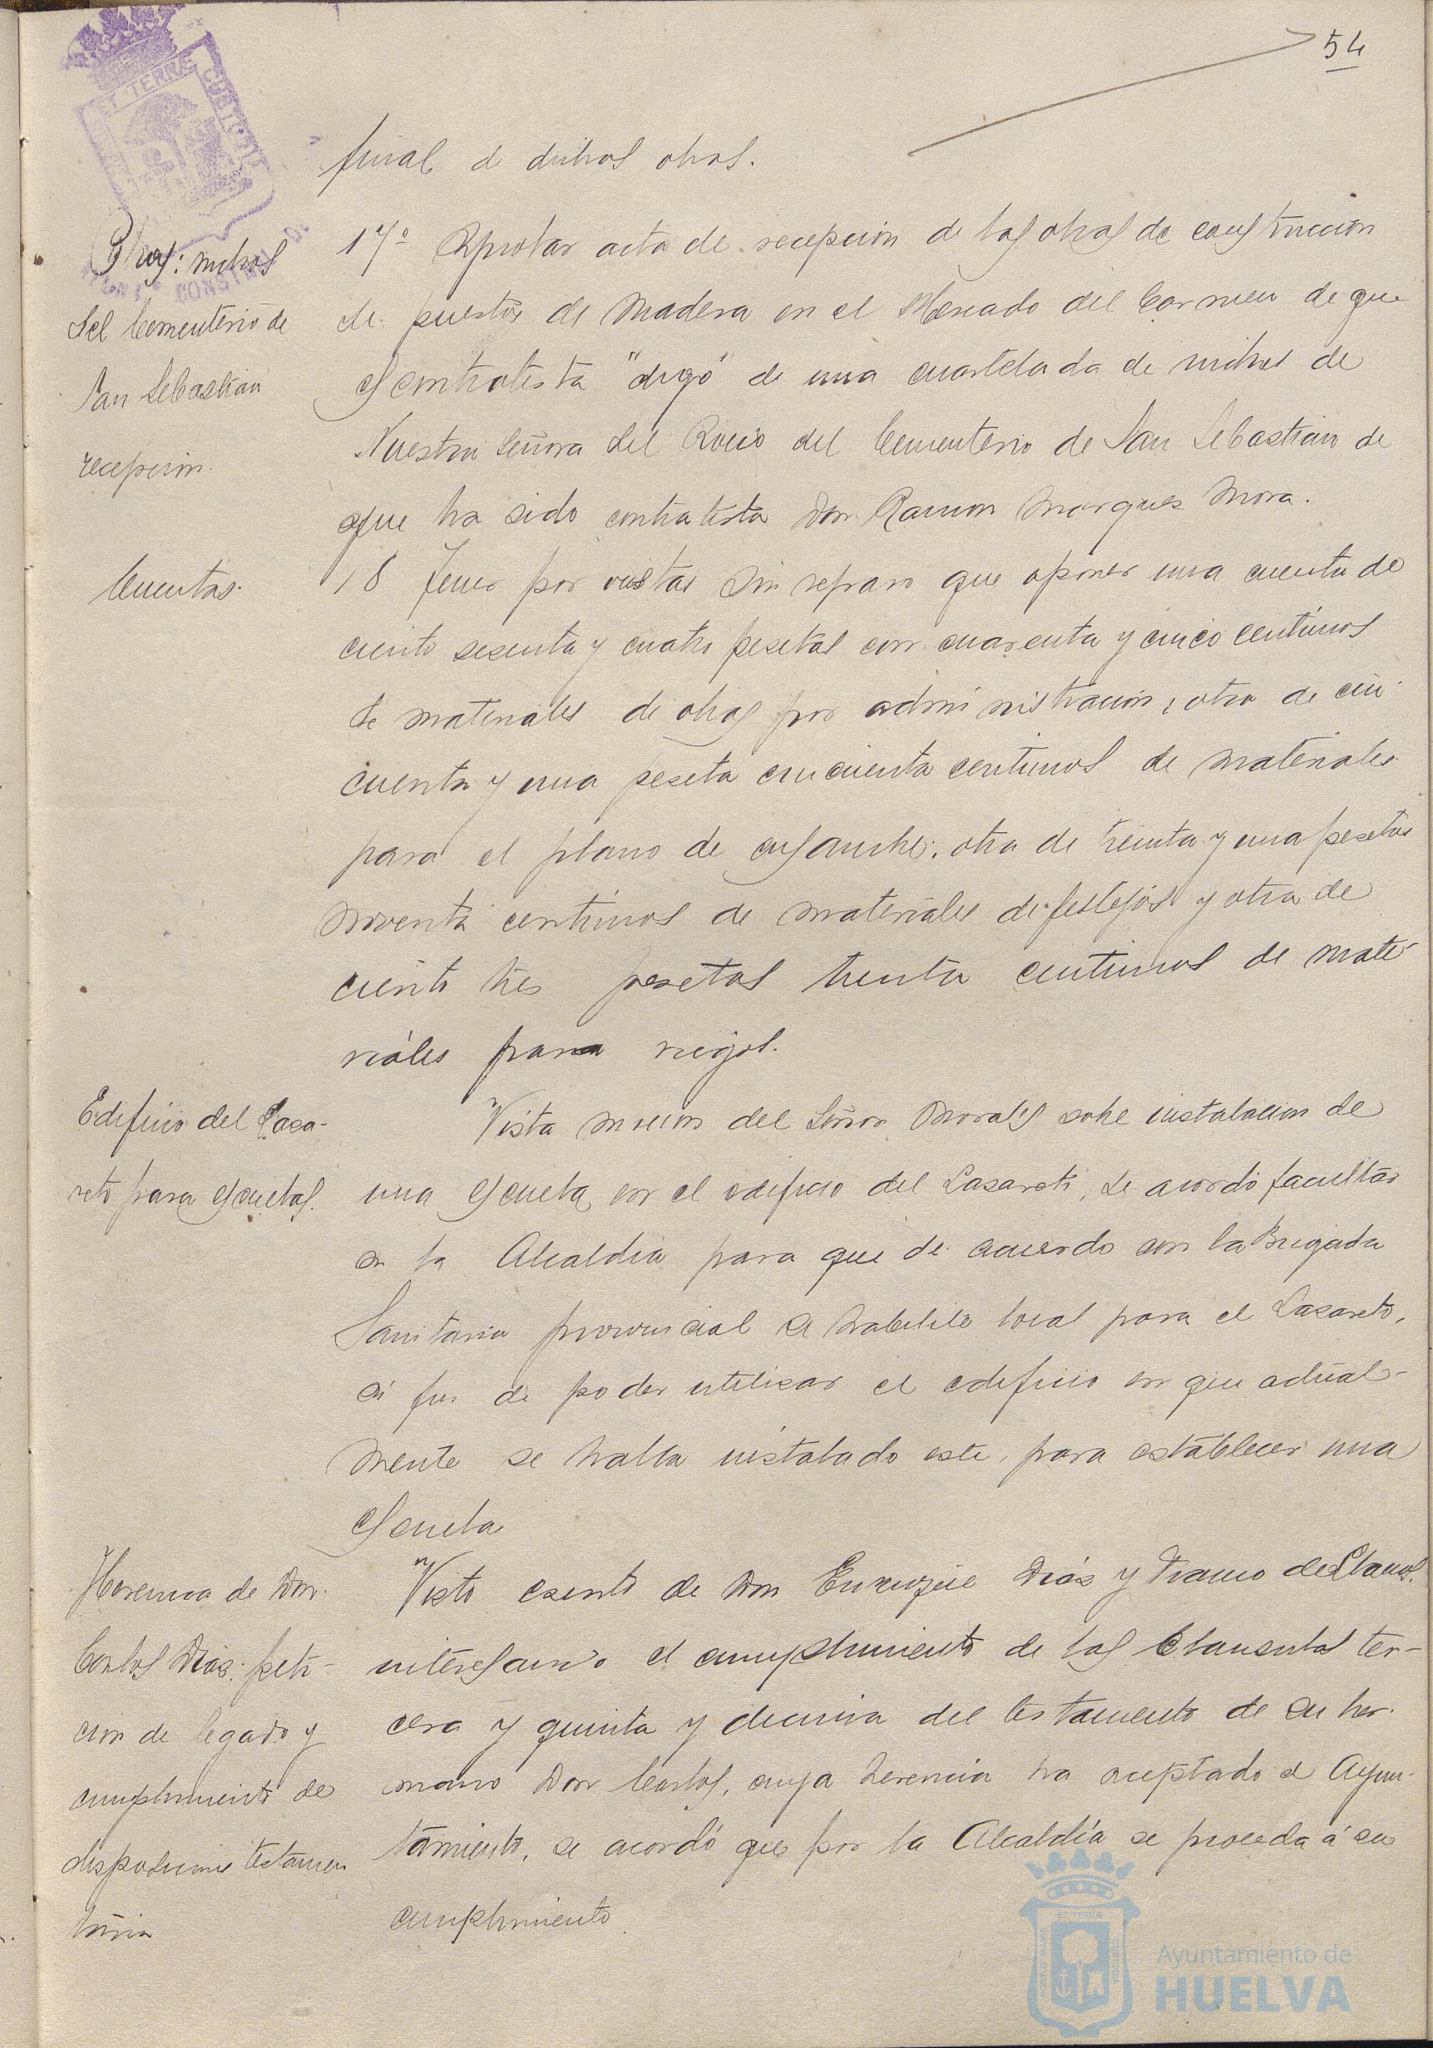 54
final de dichas obras.
Obras: nichos
del Cementerio de
San Sebastian
recepción.
17º Aprobar acta de recepción de las obras de construcción
de puestos de madera en el Mercado del Carmen de que
es contratista "digo" de una cuartelada de nichos de
Nuestra Señora del Rocio del Cementerio de San Sebastian de
que ha sido contratista Don Ramon Marques Mora.
Cuentas.
18 Tener por vistas sin reparo que oponer una cuenta de
ciento sesenta y cuatro pesetas con cuarenta y cinco centimos
de materiales de obras por administración, otra de cin-
cuenta y una peseta cincuenta centimos de materiales
para el plano de ensanche, otra de treinta y una pesetas
noventa centimos de materiales de festejos y otra de
ciento tres pesetas treinta centimos de mate-
riales para riegos.
Edificio del Laza-
reto para escuelas.
Vista moción del Señor Morales sobre instalacion de
una escuela en el edificio del Lazareto, se acordó facultar
a la Alcaldia para que de acuerdo con la Brigada
Sanitaria provincial se habilite local para el Lazareto,
a fin de poder utilizar el edificio en que actual-
mente se halla instalado este, para establecer una
escuela
Herencia de Don
Carlos Diaz: peti-
cion de legado y
cumplimiento de
disposiciones testamen
taria
Visto escrito de Don Enrique Diaz y Franco de Llanos,
interesando el cumplimiento de las clausulas ter-
cera y quinta y decima del testamento de su her-
mano Don Carlos, cuya herencia ha aceptado el Ayun-
tamiento, se acordó que por la Alcaldía se proceda á su
cumplimiento
Ayuntamiento de
HUELVA